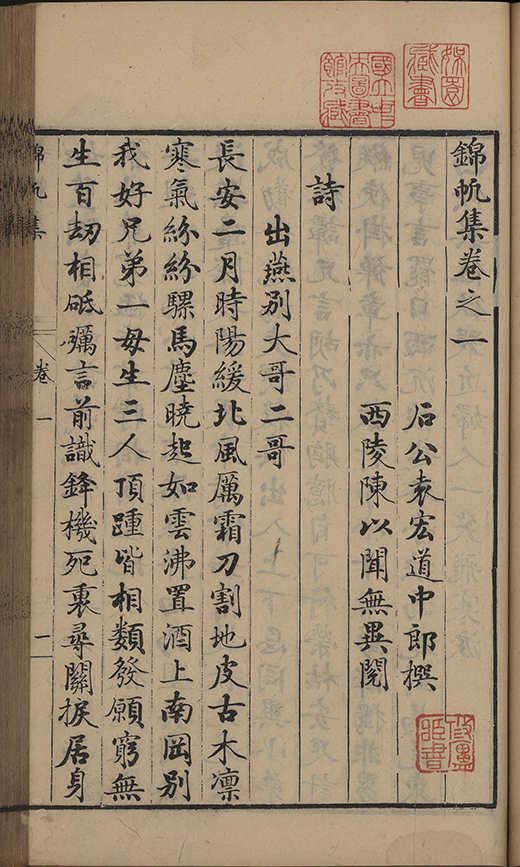 錦帆集卷之一
石公袁宏道中郎撰
西陵陳以聞無異閱
詩
出燕別大哥二哥
長安二月時陽緩北風厲霜刀割地皮古木凛
寒氣紛紛騾馬塵曉起如雲沸置酒上南岡別
我好兄弟一母生三人頂踵皆相類發願窮無
生百劫相砥礪言前識鋒機死裏尋關捩居身
錦帆集
卷一
一
國立中
央圖書
館收藏
藏書